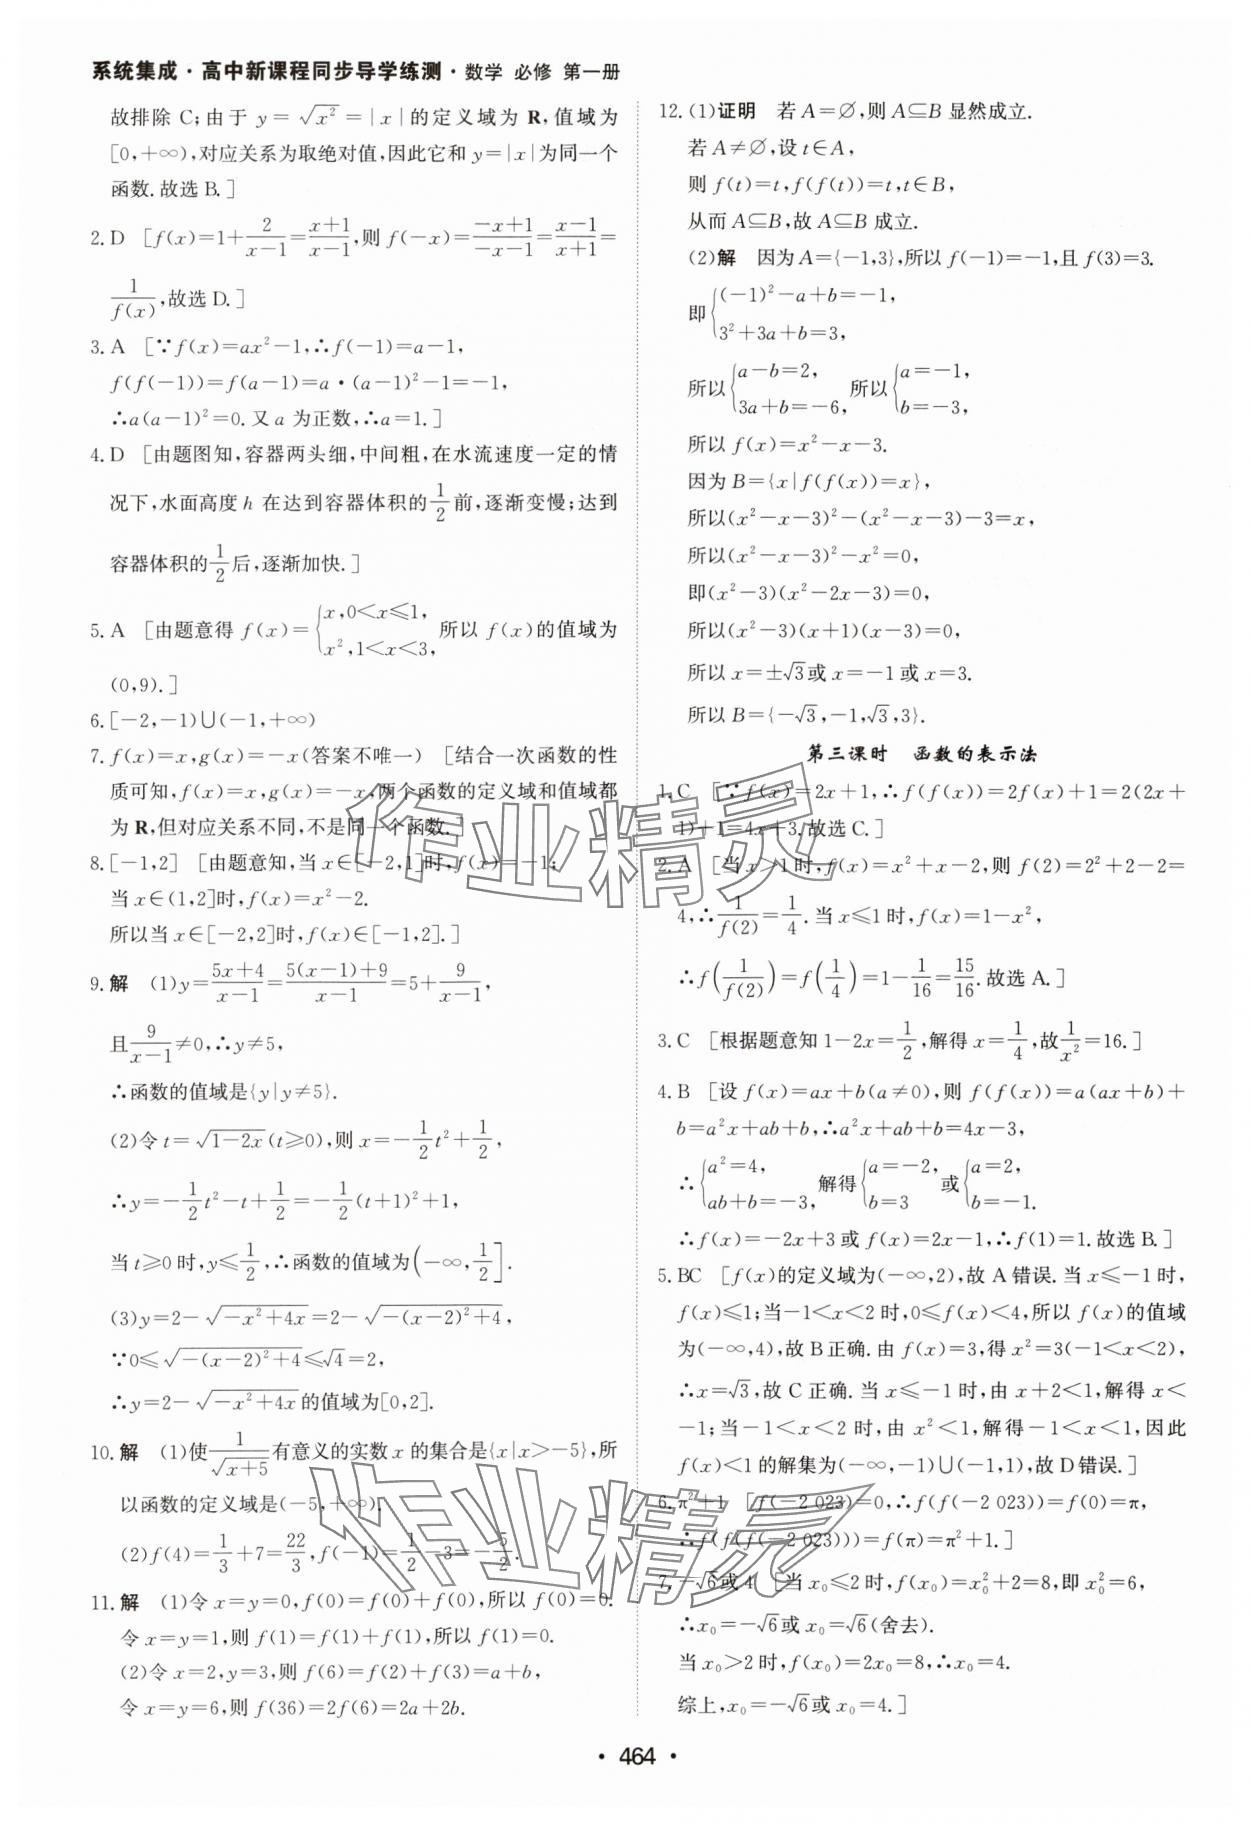 系统集成·高中新课程同步导学练测·数学 必修 第一册
故排除 C;由于 y=√(x²)=|x|的定义域为 R,值域为
[0,+∞),对应关系为取绝对值,因此它和 y=|x|为同一个
函数.故选 B.]
2. D [f(x)=1+2/(x−1)=(x+1)/(x−1),则 f(−x)=(−x+1)/(−x−1)=(x−1)/(x+1)=
1/f(x),故选 D.]
3. A [∵f(x)=ax²−1,∴f(−1)=a−1,
f(f(−1))=f(a−1)=a·(a−1)²−1=−1,
∴a(a−1)²=0.又 a 为正数,∴a=1.]
4. D [由题图知,容器两头细,中间粗,在水流速度一定的情
况下,水面高度 h 在达到容器体积的1/2前,逐渐变慢;达到
容器体积的1/2后,逐渐加快.]
5. A [由题意得 f(x)={x,0<x≤1, x²,1<x<3,所以 f(x)的值域为
(0,9).]
6. [−2,−1)∪(−1,+∞)
7. f(x)=x,g(x)=−x(答案不唯一) [结合一次函数的性
质可知,f(x)=x,g(x)=−x,两个函数的定义域和值域都
为 R,但对应关系不同,不是同一个函数.]
8. [−1,2] [由题意知,当 x∈[−2,1]时,f(x)=−1;
当 x∈(1,2]时,f(x)=x²−2.
所以当 x∈[−2,2]时,f(x)∈[−1,2].]
9. 解 (1)y=(5x+4)/(x−1)=(5(x−1)+9)/(x−1)=5+9/(x−1),
且9/(x−1)≠0,∴y≠5,
∴函数的值域是{y|y≠5}.
(2)令 t=√(1−2x)(t≥0),则 x=−1/2t²+1/2,
∴y=−1/2t²−t+1/2=−1/2(t+1)²+1,
当 t≥0 时,y≤1/2,∴函数的值域为(−∞,1/2].
(3)y=2−√(−x²+4x)=2−√(−(x−2)²+4),
∵0≤√(−(x−2)²+4)≤√4=2,
∴y=2−√(−x²+4x)的值域为[0,2].
10. 解 (1)使1/√(x+5)有意义的实数 x 的集合是{x|x>−5},所
以函数的定义域是(−5,+∞).
(2)f(4)=1/3+7=22/3,f(−1)=1/2−3=−5/2.
11. 解 (1)令 x=y=0,f(0)=f(0)+f(0),所以 f(0)=0.
令 x=y=1,则 f(1)=f(1)+f(1),所以 f(1)=0.
(2)令 x=2,y=3,则 f(6)=f(2)+f(3)=a+b,
令 x=y=6,则 f(36)=2f(6)=2a+2b.
12. (1)证明 若 A=∅,则 A⊆B 显然成立.
若 A≠∅,设 t∈A,
则 f(t)=t,f(f(t))=t,t∈B,
从而 A⊆B,故 A⊆B 成立.
(2)解 因为 A={−1,3},所以 f(−1)=−1,且 f(3)=3.
即{(−1)²−a+b=−1, 3²+3a+b=3,
所以{a−b=2, 3a+b=−6,所以{a=−1, b=−3,
所以 f(x)=x²−x−3.
因为 B={x|f(f(x))=x},
所以(x²−x−3)²−(x²−x−3)−3=x,
所以(x²−x−3)²−x²=0,
即(x²−3)(x²−2x−3)=0,
所以(x²−3)(x+1)(x−3)=0,
所以 x=±√3或 x=−1 或 x=3.
所以 B={−√3,−1,√3,3}.
第三课时 函数的表示法
1. C [∵f(x)=2x+1,∴f(f(x))=2f(x)+1=2(2x+
1)+1=4x+3.故选 C.]
2. A [当 x>1 时,f(x)=x²+x−2,则 f(2)=2²+2−2=
4,∴1/f(2)=1/4.当 x≤1 时,f(x)=1−x²,
∴f(1/f(2))=f(1/4)=1−1/16=15/16.故选 A.]
3. C [根据题意知 1−2x=1/2,解得 x=1/4,故1/x²=16.]
4. B [设 f(x)=ax+b(a≠0),则 f(f(x))=a(ax+b)+
b=a²x+ab+b,∴a²x+ab+b=4x−3,
∴{a²=4, ab+b=−3,解得{a=−2, b=3或{a=2, b=−1.
∴f(x)=−2x+3 或 f(x)=2x−1,∴f(1)=1.故选 B.]
5. BC [f(x)的定义域为(−∞,2),故 A 错误.当 x≤−1 时,
f(x)≤1;当−1<x<2 时,0≤f(x)<4,所以 f(x)的值域
为(−∞,4),故 B 正确.由 f(x)=3,得 x²=3(−1<x<2),
∴x=√3,故 C 正确.当 x≤−1 时,由 x+2<1,解得 x<
−1;当−1<x<2 时,由 x²<1,解得−1<x<1,因此
f(x)<1 的解集为(−∞,−1)∪(−1,1),故 D 错误.]
6. π²+1 [f(−2 023)=0,∴f(f(−2 023))=f(0)=π,
∴f(f(f(−2 023)))=f(π)=π²+1.]
7. −√6或 4 [当 x₀≤2 时,f(x₀)=x₀²+2=8,即 x₀²=6,
∴x₀=−√6或 x₀=√6(舍去).
当 x₀>2 时,f(x₀)=2x₀=8,∴x₀=4.
综上,x₀=−√6或 x₀=4.]
作业精灵
作业精灵
·464·